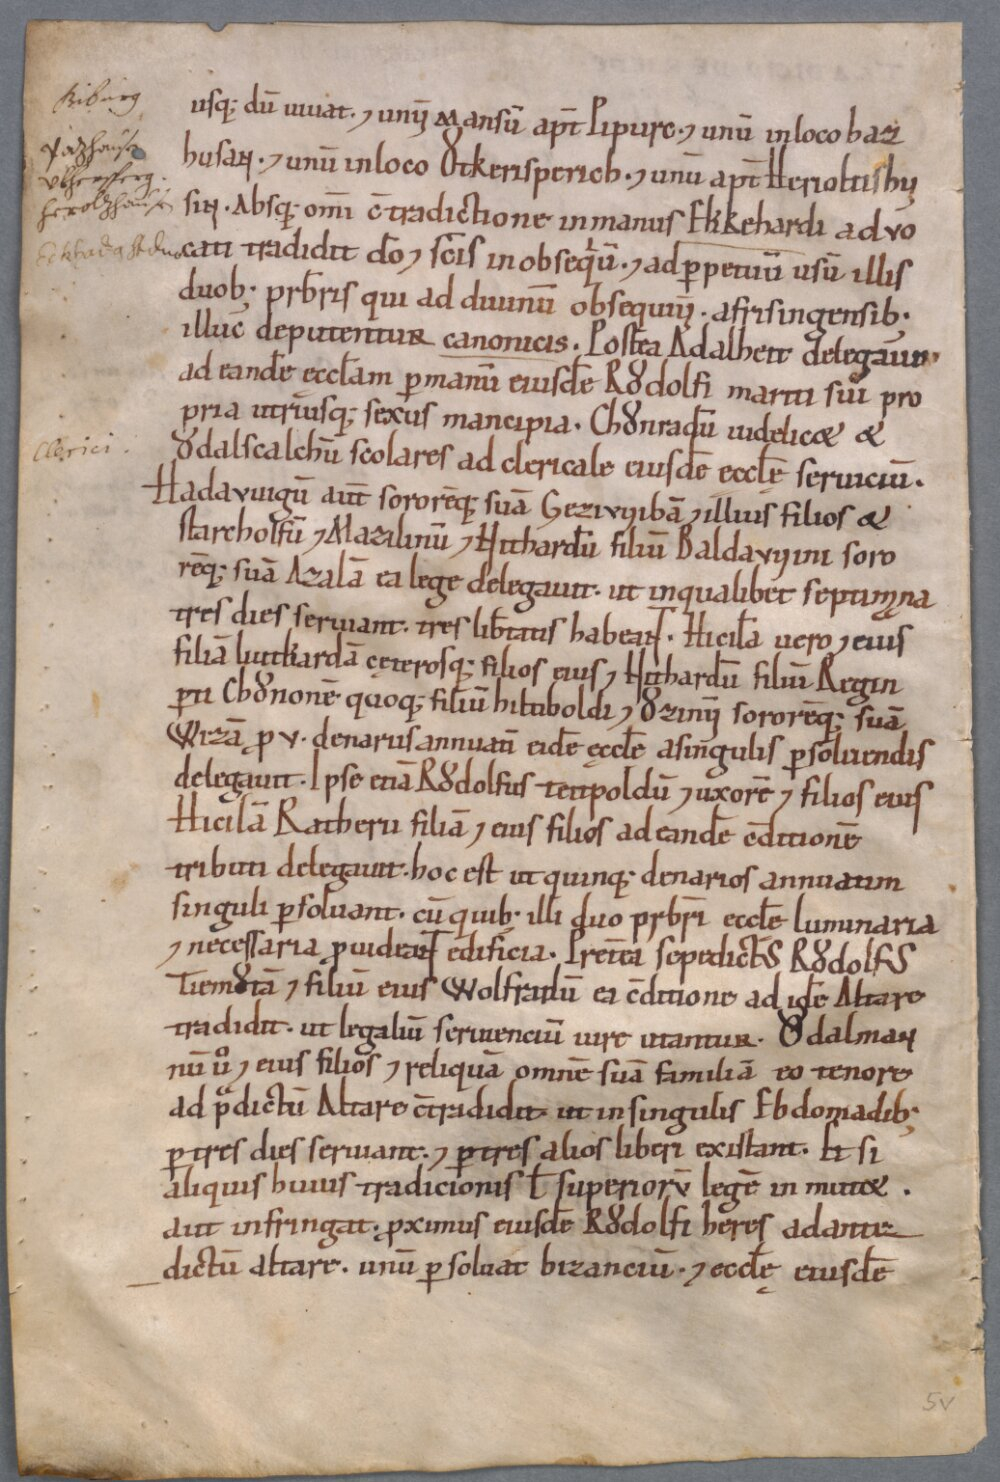 Kiburg
usq; dū uiuat. ⁊ unū Mansū apt̄ Pipurc. ⁊ unū in loco baz
husan. ⁊ unū in loco Ȣtkerisperich. ⁊ unū apt̄ Herioltishu
sin. Absq; om̄i c̄tradictione in manus Ekkehardi advo
cati tradidit dō ⁊ sc̄is in obseq̇ū. ⁊ ad ꝑpetuū usū illis
duob; prb̄ris qui ad diuinū obsequiū. a frisingensib;
illuc deputentur canonicis. Postea Adalheit delegauit
ad eandē ęccl̄am ꝑ manū eiusdē Rȣdolfi mariti sui pro
pria utriusq; sexus mancipia. Chȣnradū uidelicet &
Clerici.
Ȣdalscalchū scolares ad clericale eiusdē eccl̄ę seruiciū.
Hadavuigū aūt sororēq; suā Gerivvibā ⁊ illius filios &
starcholfū ⁊ Mazilinū ⁊ Hithardū filiū Baldavvini soro
rēq; suā Azalā ea lege delegauit. ut in qualibet septimana
tres dies seruiant. tres lib̄tatis habeant. Hicila uero ⁊ eius
filiā liutkardā cęterosq; filios eius ⁊ Hithardū filiū Regin
ꝑti Chȣnonē quoq; filiū hiltiboldi ⁊ Ȣzinū sororēq; suā
Wizā ꝓ v. denariis annuatī eidē ęccl̄ę a singulis ꝑsoluendis
delegauit. Ipse etiā Rȣdolfus teupoldū ⁊ uxorē ⁊ filios eius
Hicilā Ratherii filiā ⁊ eius filios ad eandē c̄ditionē
tributi delegauit. hoc est ut quinq; denarios annuatim
singuli ꝑsoluant. cū quib; illi duo prb̄ri eccl̄ę luminaria
⁊ necessaria ꝓuideant edificia. Pretea sepedictus Rȣdolfus
Tiemȣtā ⁊ filiū eius Wolfradū ea c̄ditione ad idē Altare
tradidit. ut legaliū seruienciū iure utantur. Ȣdalman
nū ů ⁊ eius filios ⁊ reliquā omnē suā familiā eo tenore
ad p̄dictū Altare c̄tradidit ut in singulis Ebdomadib;
ꝑ tres dies seruiant. ⁊ ꝑ tres alios liberi existant. Et si
aliquis huius tradicionis ł superiorū legē in mutet.
aut infringat. ꝓximus eiusdē Rȣdolfi heres ad ante
dictū altare. unū ꝑsoluat bizanciū. ⁊ eccl̄ę eiusdē
5v